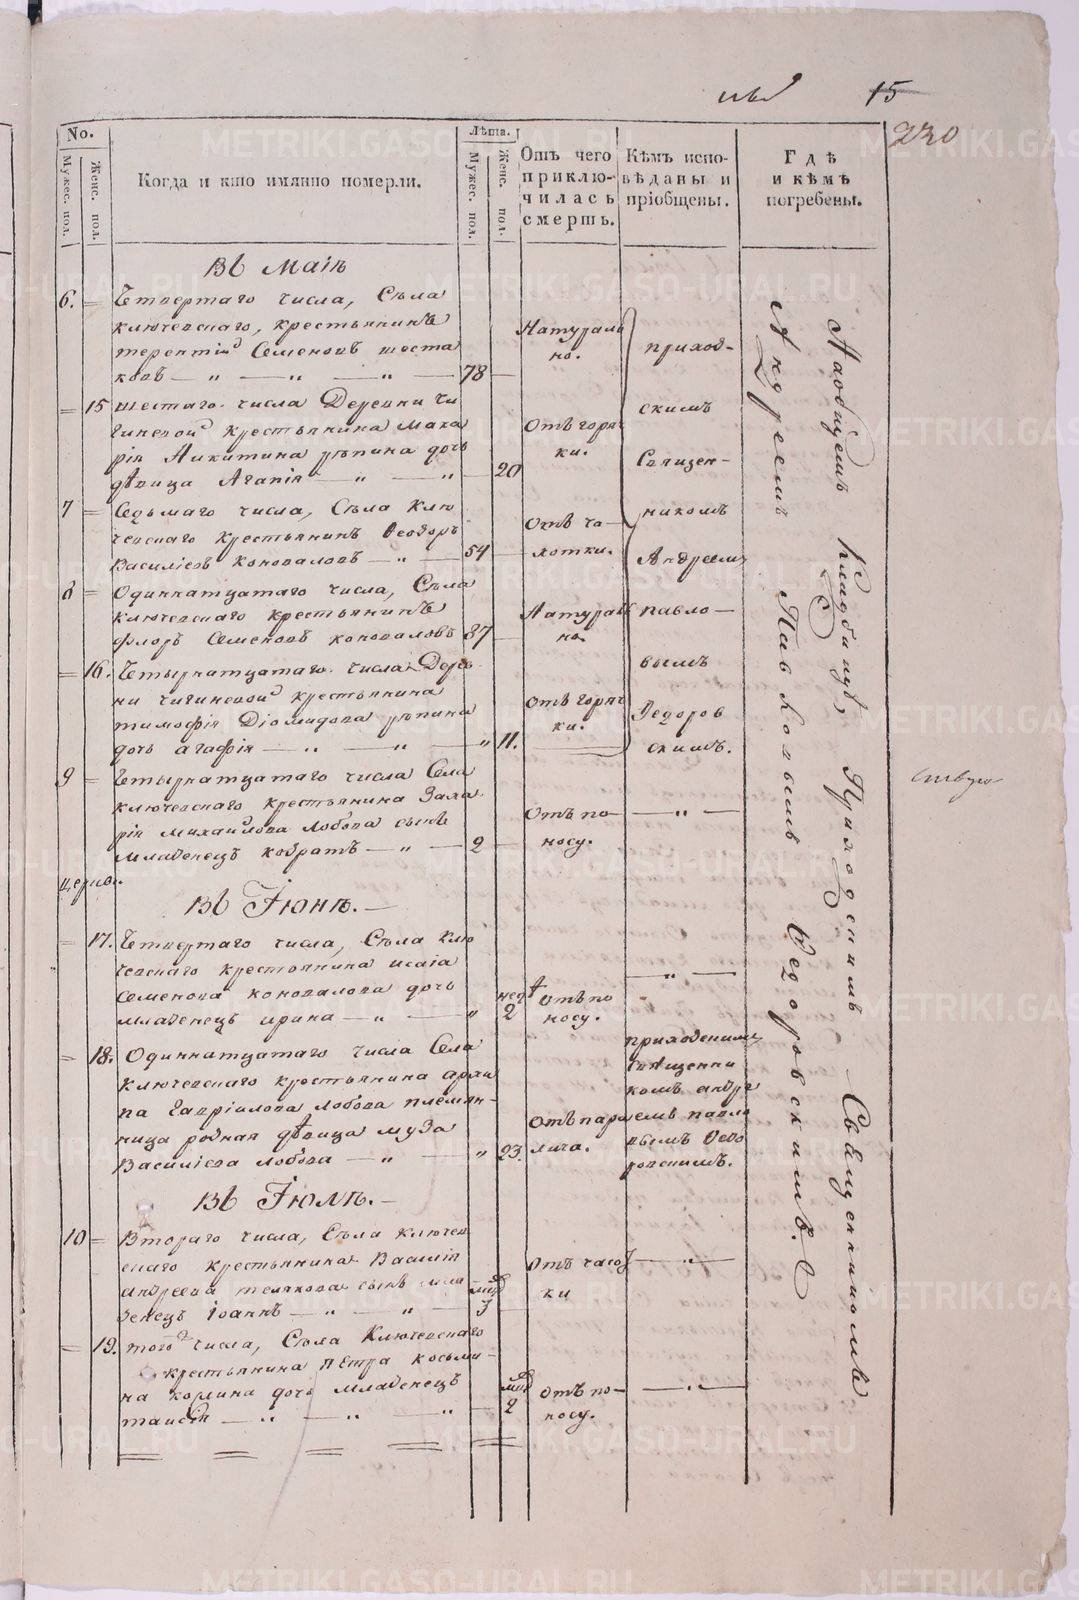 15
230
No.
Мужес. пол.
Женс. пол.
Когда и кто имянно померли.
Лѣта.
Мужес. пол.
Женс. пол.
Отъ чего приклю-чилась смерть.
Кѣмъ испо-вѣданы и пріобщены.
Гдѣ и кѣмъ погребены.
Въ Маіѣ
6. = Четвертаго числа, Сѣла
ключевскаго, крестьянинъ
терентій Семеновъ шеста
ковъ — „ — „ — „ — 78 —
Натураль
но.
= 15 шестаго числа Деревни Чи
гиневой крестьянина Мака
рія Никитина рѣпина дочь
дѣвица Агапія — „ — „ — 20
Отъ горяч
ки.
7 = Седьмаго числа, Сѣла Клю
чевскаго крестьянинъ Ѳеодоръ
Василіевъ Коноваловъ — „ — 54 —
Отъ ча-
хотки.
8 = Одиннатцатаго числа, Сѣла
ключевскаго крестьянинъ
Флоръ Семеновъ коноваловъ 87 —
Натураль
но.
= 16. Четырнатцатаго числа Дерев
ни чигиневой крестьянина
тимофѣя Діомидова рѣпина
дочь агафія — „ — „ — „ 11.
Отъ горяч
ки.
приход-
скимъ
Священ-
никомъ
Андреемъ
павло-
вымъ
Ѳедоров
скимъ.
9 = Четырнатцатаго числа Села
ключевскаго крестьянина Заха
рія михайлова Лобова сынъ
младенецъ кодратъ — „ — 2 —
Отъ по-
носу.
— „ —
Въ Іюнѣ. —
= 17. Четвертаго числа, Сѣла клю
чевскаго крестьянина исаія
Семенова коновалова дочь
младенецъ ирина — „ — „
нед
2
отъ по
носу.
— „ —
= 18. Одиннатцатаго числа Села
ключевскаго крестьянина архи
па Гавріилова Лобова племян-
ница родная дѣвица муза
Василіева лобова — „ — „ 23.
Отъ пара
лича.
приходскимъ
Священни
комъ андре
емъ павло
вымъ Ѳедо
ровскимъ.
Въ Іюлѣ. —
10 = Втораго числа, Сѣла ключев
скаго крестьянина Василія
андреева сынъ мла
денецъ іоаннъ — „ — „ —
3 —
отъ часот
ки
— „ —
= 19. того числа, Сѣла Ключевскаго
крестьянина Петра косьми-
на дочь младенецъ
таисія — „ — „ — „ —
2
отъ по-
носу.
— „ —
На общемъ Кладбищѣ, Приходскимъ Священникомъ
Андреемъ Павловымъ Ѳедоровскимъ.